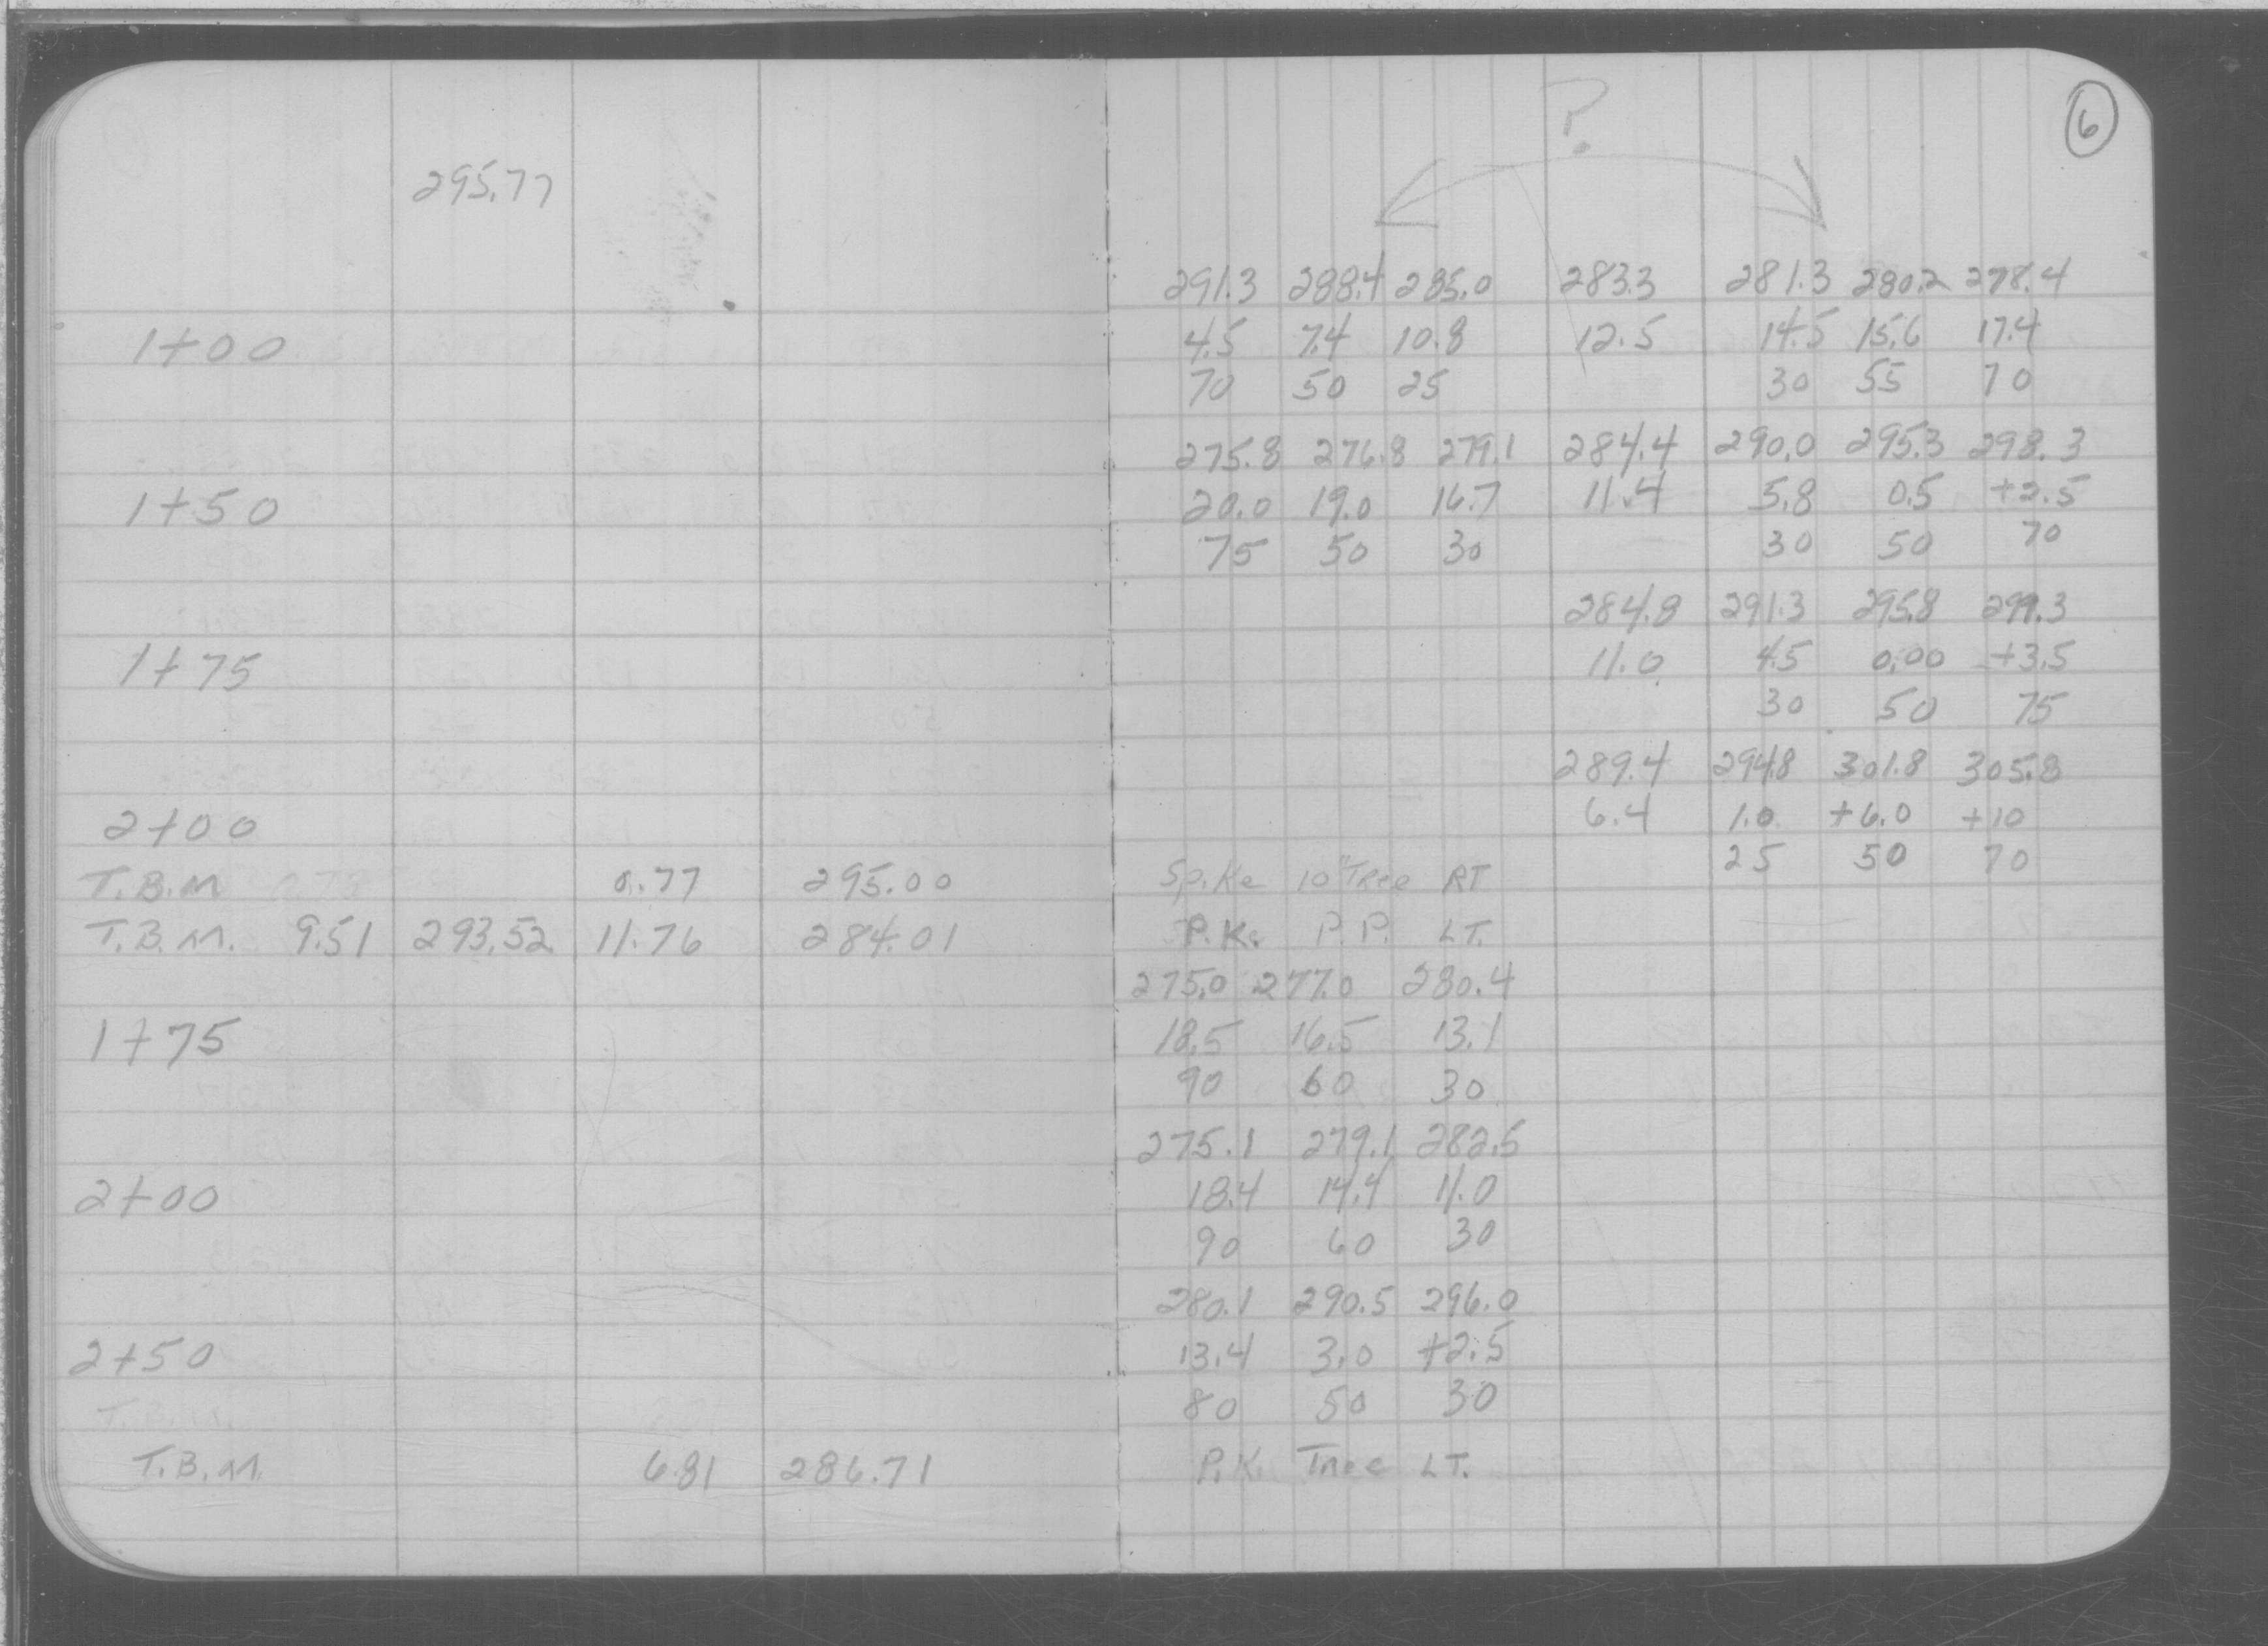 6
?
295.77
291.3 288.4 285.0 283.3 281.3 280.2 278.4
1+00 4.5 7.4 10.8 12.5 14.5 15.6 17.4
70 50 25 30 55 70
275.8 276.8 279.1 284.4 290.0 295.3 298.3
1+50 20.0 19.0 16.7 11.4 5.8 0.5 +2.5
75 50 30 30 50 70
284.8 291.3 295.8 299.3
1+75 11.0 4.5 0.00 +3.5
30 50 75
289.4 294.8 301.8 305.8
2+00 6.4 1.0 +6.0 +10
25 50 70
T.B.M 0.77 295.00 Spike 10" Tree RT
T.B.M. 9.51 293.52 11.76 284.01 P.K. P.P. LT.
275.0 277.0 280.4
1+75 18.5 16.5 13.1
90 60 30
275.1 279.1 282.5
2+00 18.4 14.4 11.0
90 60 30
280.1 290.5 296.0
2+50 13.4 3.0 +2.5
80 50 30
T.B.M.
T.B.M. 6.81 286.71 P.K. Tree LT.